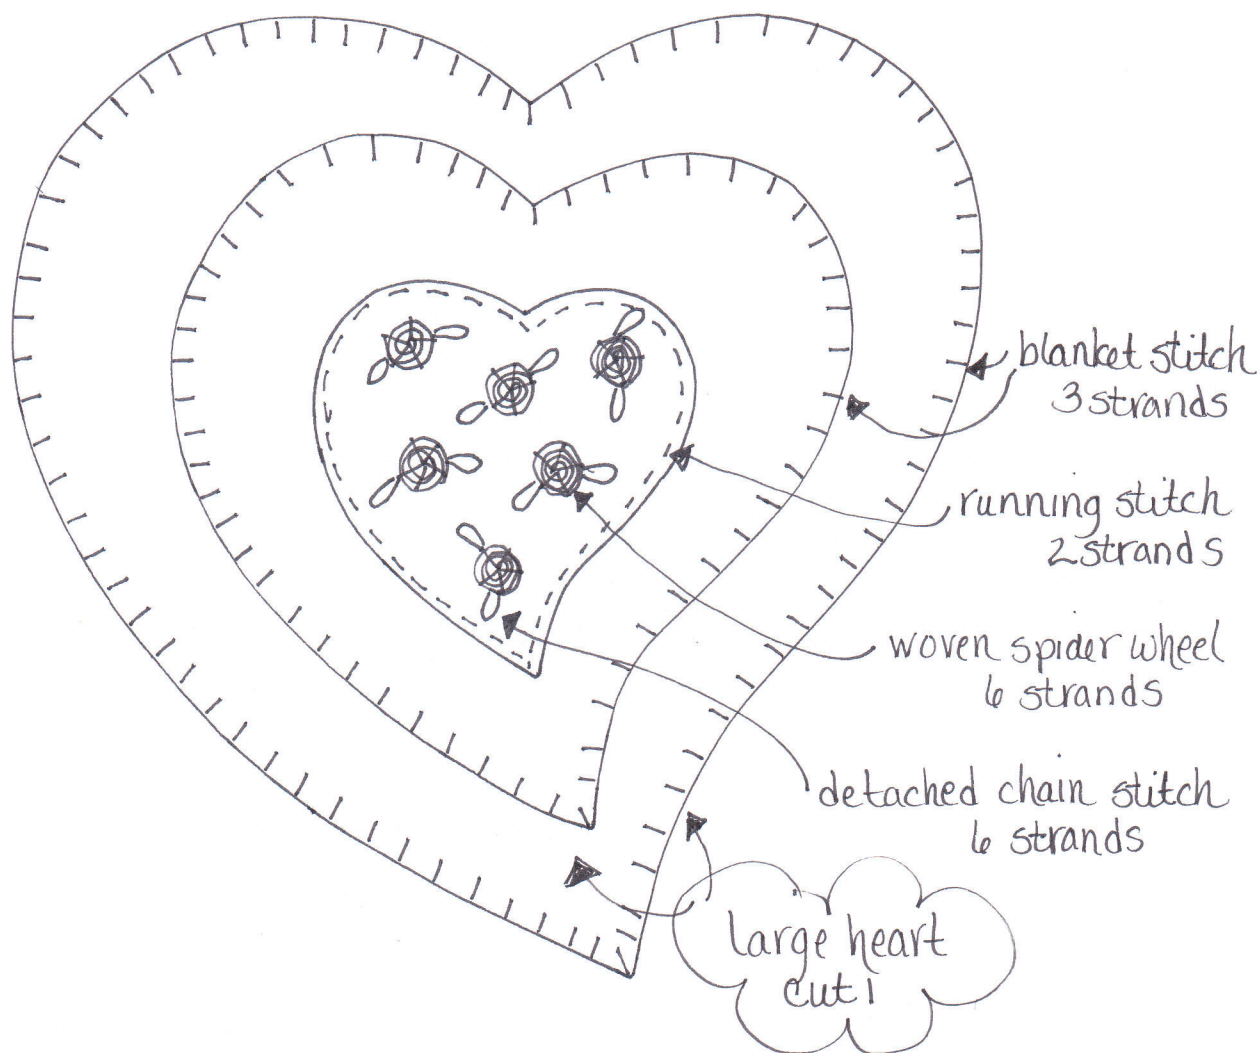 blanket stitch
3 strands
running stitch
2 strands
woven spider wheel
6 strands
detached chain stitch
6 strands
large heart
cut 1